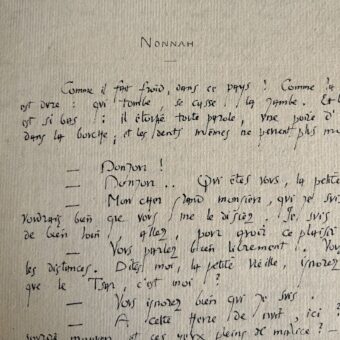 NONNAH
Comme il fait froid, dans ce pays ! Comme la
est dure : qui tombe, se casse la jambe. Et l
est si bas : il étouffe toute parole, une poire d'
dans la bouche ; et les dents mêmes ne peuvent plus m
— Bonjour !
— Bonjour .. Qui êtes vous, la petite
— Mon cher grand monsieur, qui je suis
voudrais bien que vous me le disiez. Je suis
de bien loin, allez, pour avoir ce plaisir
— Vous parlez bien librement. Vo
les distances. Dites moi, la petite vieille, ignorez
que le Tsar, c'est moi ?
— Vous ignorez bien qui je suis.
— A cette heure de nuit, ici ?
et ces yeux pleins de malice ? —